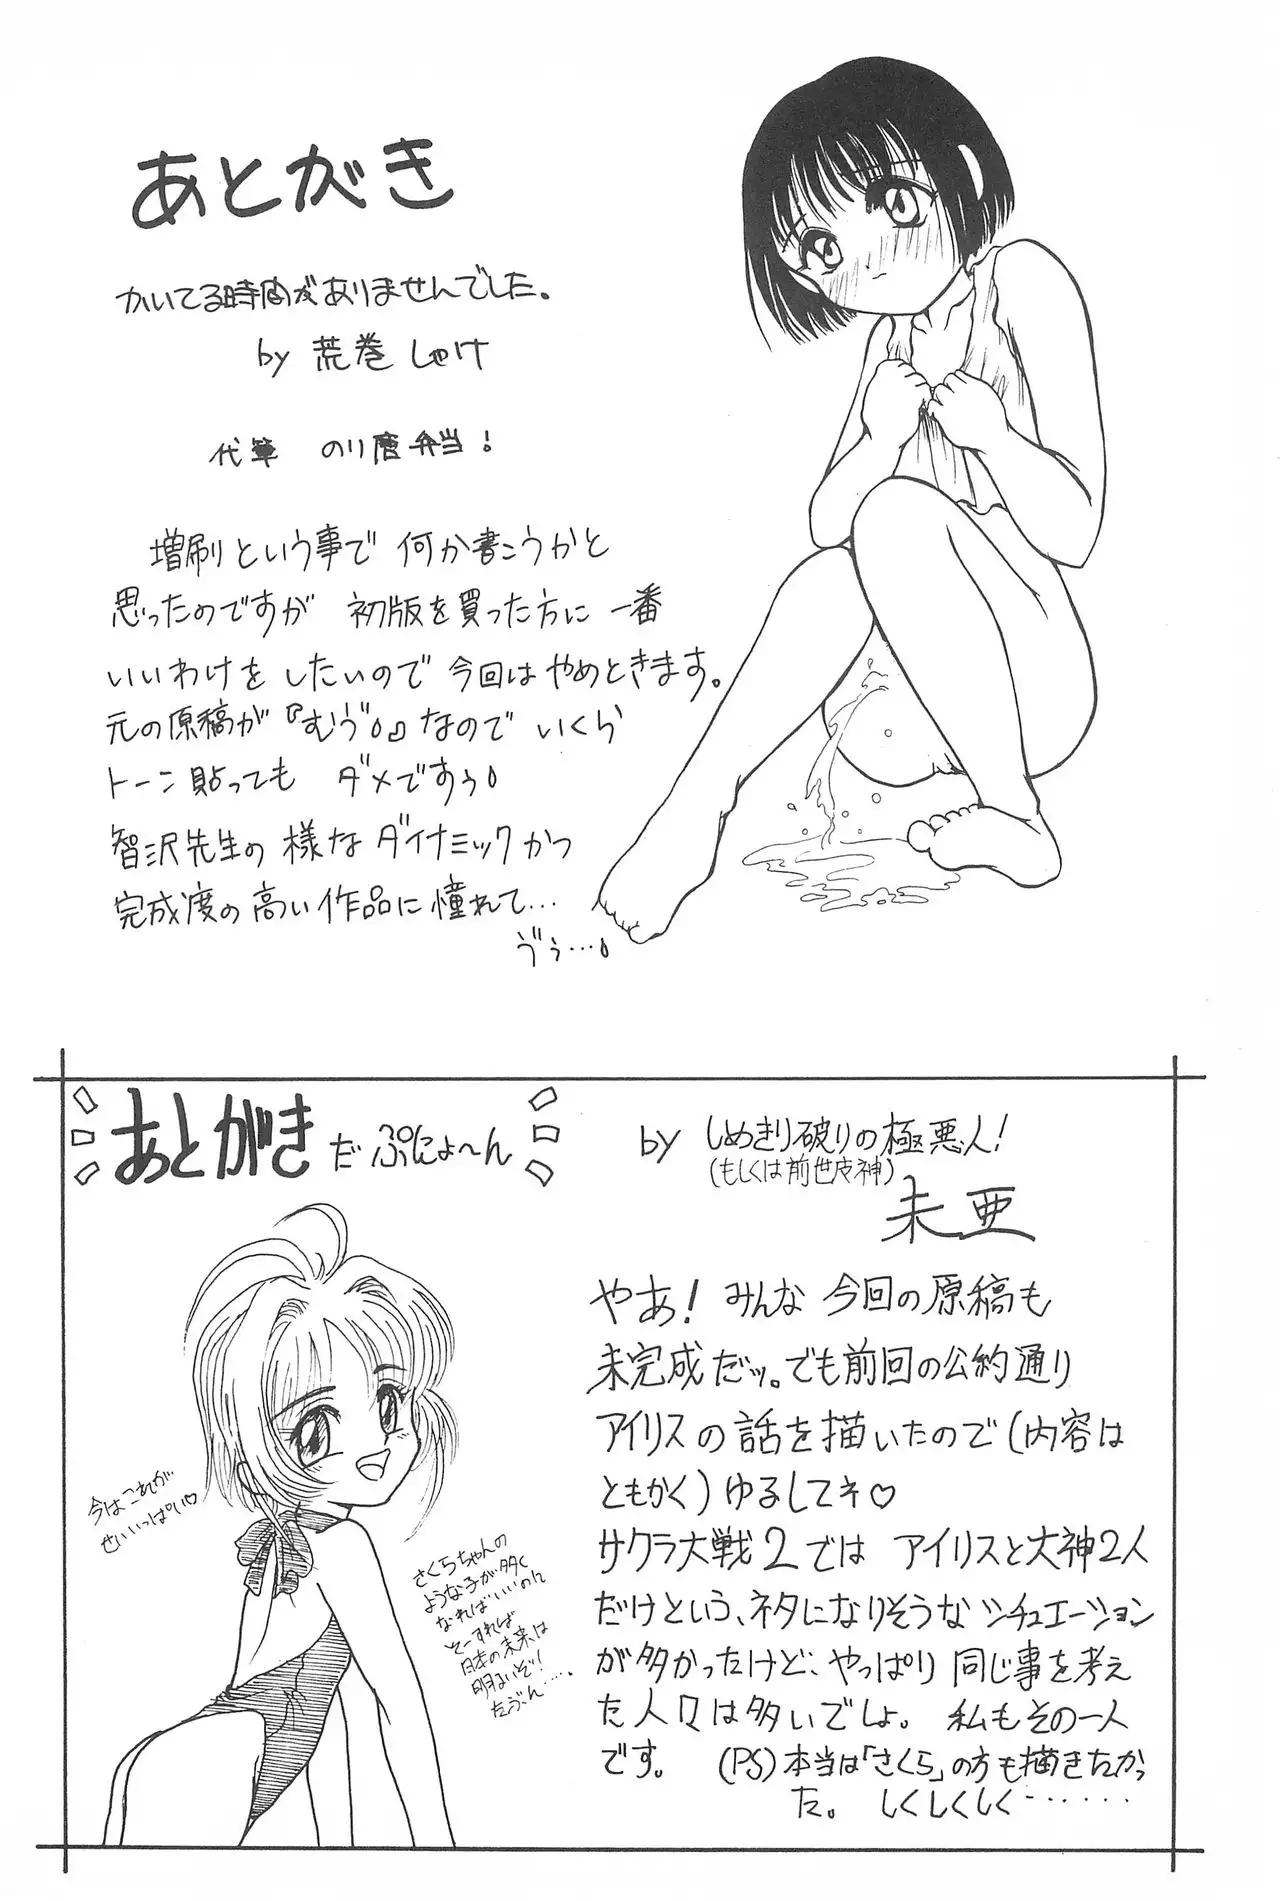 あとがき
かいてる時間がありませんでした。
by 荒巻しゃけ
代筆 のり麿弁当!
増刷という事で 何か書こうかと
思ったのですが 初版を買った方に 一番
いいわけを したいので 今回は やめときます。
元の原稿が『むう』なので いくら
トーン貼っても ダメですぅ
智沢先生の 様な ダイナミックかつ
完成度の 高い 作品に 憧れて…
ゔぅ…
あとがき だ ぷにょ〜ん
by しめきり破りの極悪人!
(もしくは前世皮神)
未亜
やあ! みんな 今回の原稿も
未完成だッ。でも前回の公約通り
アイリスの 話を 描いたので (内容は
ともかく) ゆるしてネ♡
サクラ大戦2では アイリスと大神2人
だけという、ネタになりそうな シチュエーション
が多かったけど、やっぱり 同じ事を考え
た人々は多いでしょ。 私もその一人
です。 (PS)本当は「さくら」の方も描きたかっ
た。 しくしくしく……
今はこれが
せいいっぱい♡
さくらちゃんの
ような子が多く
なればいいのに
そーすれば
日本の未来は
明るいぞ!
たぶん……